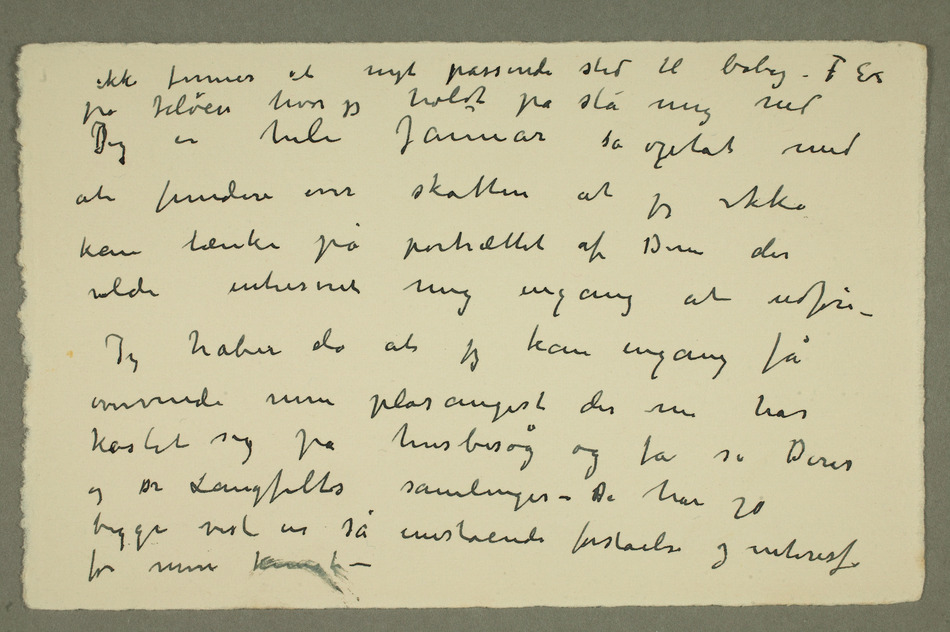 ikke finnes et nyt passende sted til bolig – F Ex
på Jeløen hvor jeg holdt på slå mig ned
Jeg er hele Januar så optat med
at fundere over skatten at jeg ikke
kan tænke på portrættet af Dem der
vilde intresseret mig engang at udføre –
Jeg håber da at jeg kan engang få
overvinde min plasangest der nu har
kastet sig på husbesøg og få se Deres
og Dr Langfelts samlinger – De har jo
begge vist en så enestående forståelse og interesse
for min kunst –